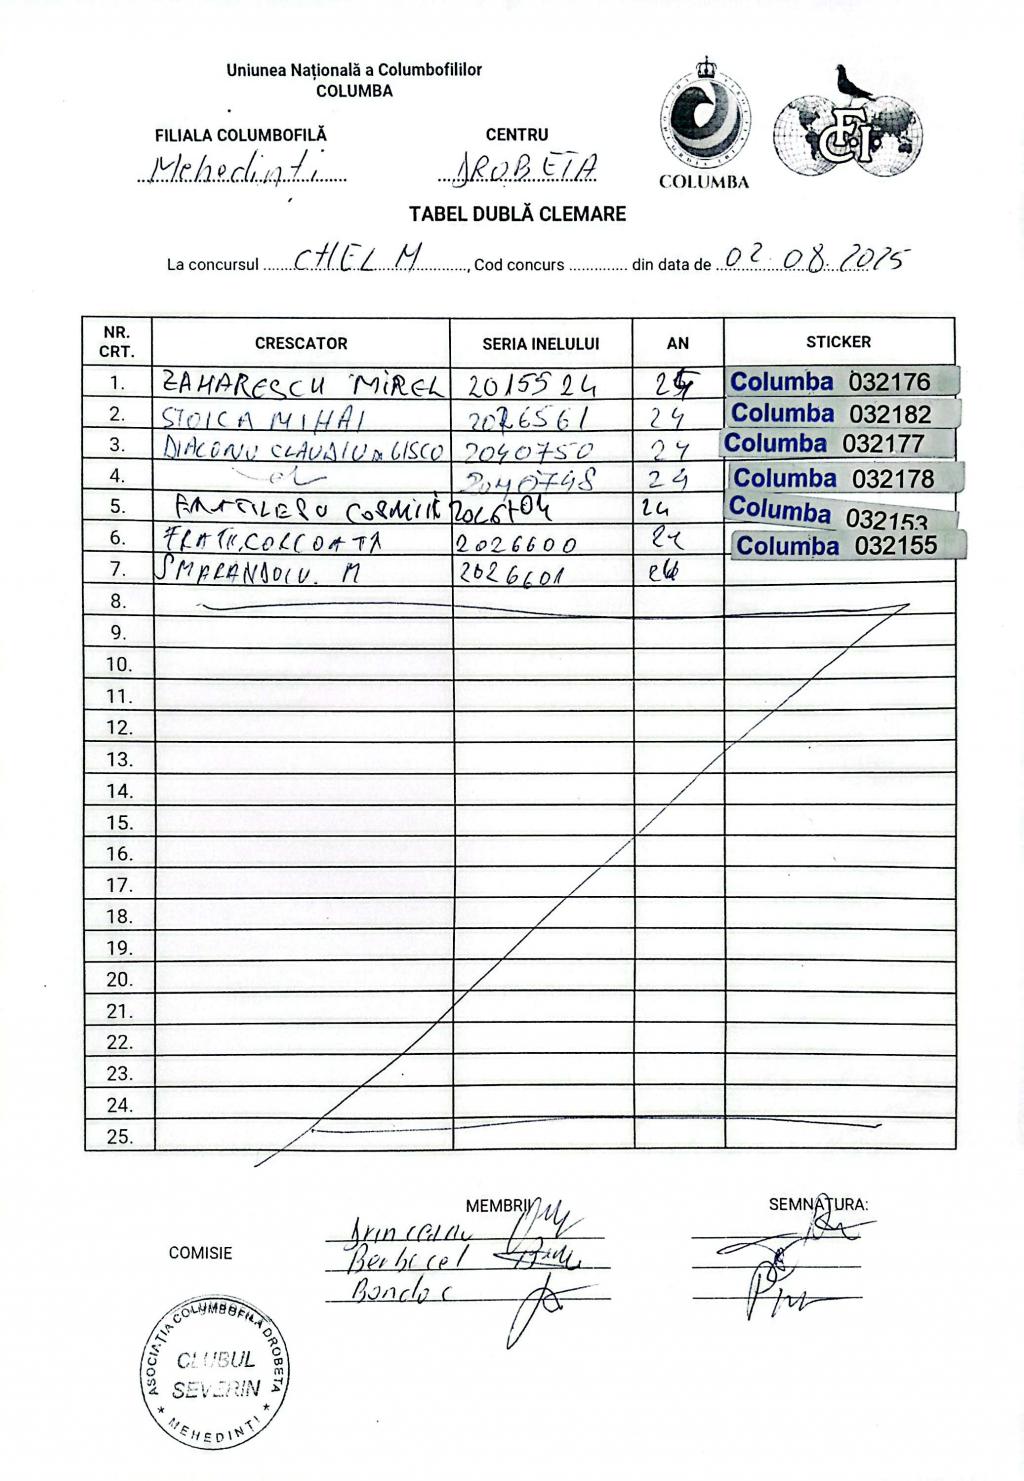 Uniunea Națională a Columbofililor
COLUMBA
FILIALA COLUMBOFILĂ CENTRU
Mehedinți DROBETA
COLUMBA
FCI
TABEL DUBLĂ CLEMARE
La concursul CHELM, Cod concurs din data de 02.08.2025
NR. CRT. CRESCATOR SERIA INELULUI AN STICKER
1. ZAHARESCU MIREL 2015524 Columba 032176
2. STOICA MIHAI 2026561 24 Columba 032182
3. DIACONU CLAUDIU 2040750 24 Columba 032177
4. 2040748 24 Columba 032178
5. 24 Columba 032153
6. 2026600 24 Columba 032155
7. SMARANDOIU. M 2026601
8.
9.
10.
11.
12.
13.
14.
15.
16.
17.
18.
19.
20.
21.
22.
23.
24.
25.
MEMBRII SEMNATURA:
COMISIE
Berbecel
Bondoc
ASOCIATIA COLUMBOFILA DROBETA
CLUBUL
SEVERIN
* MEHEDINTI *